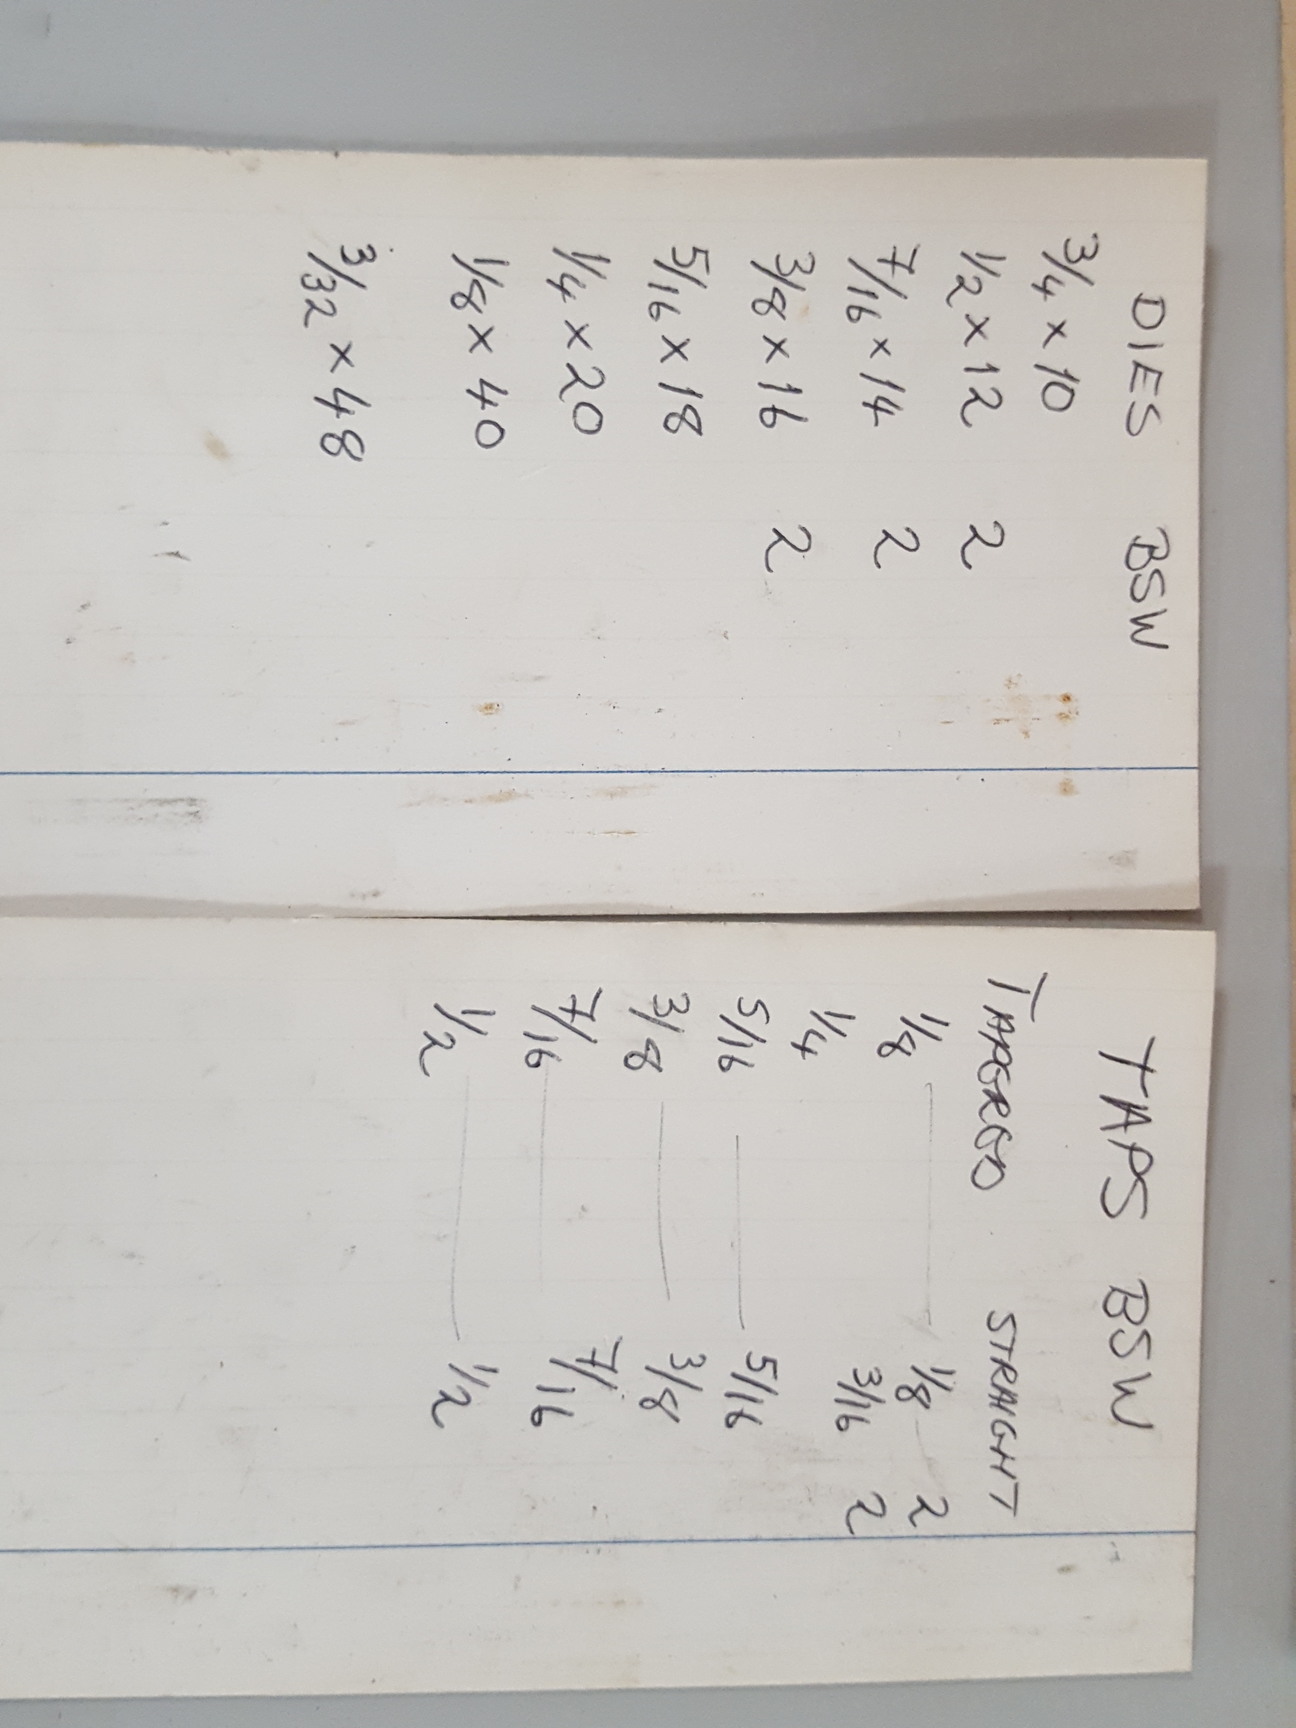 DIES BSW
3/4 x 10
1/2 x 12 2
7/16 x 14 2
3/8 x 16 2
5/16 x 18
1/4 x 20
1/8 x 40
3/32 x 48
TAPS BSW
TAPERED STRAIGHT
1/8 1/8 2
1/4 3/16 2
5/16 5/16
3/8 3/8
7/16 7/16
1/2 1/2